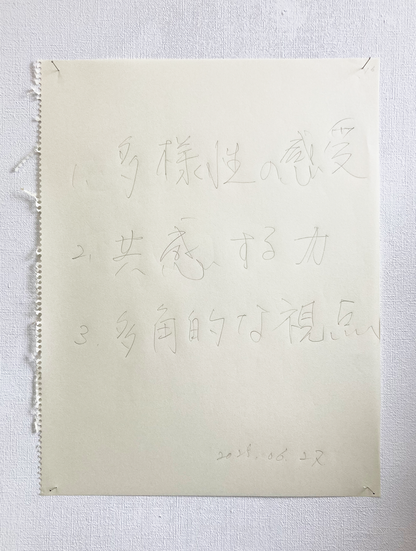 1. 多様性の感受
2. 共感する力
3. 多角的な視点